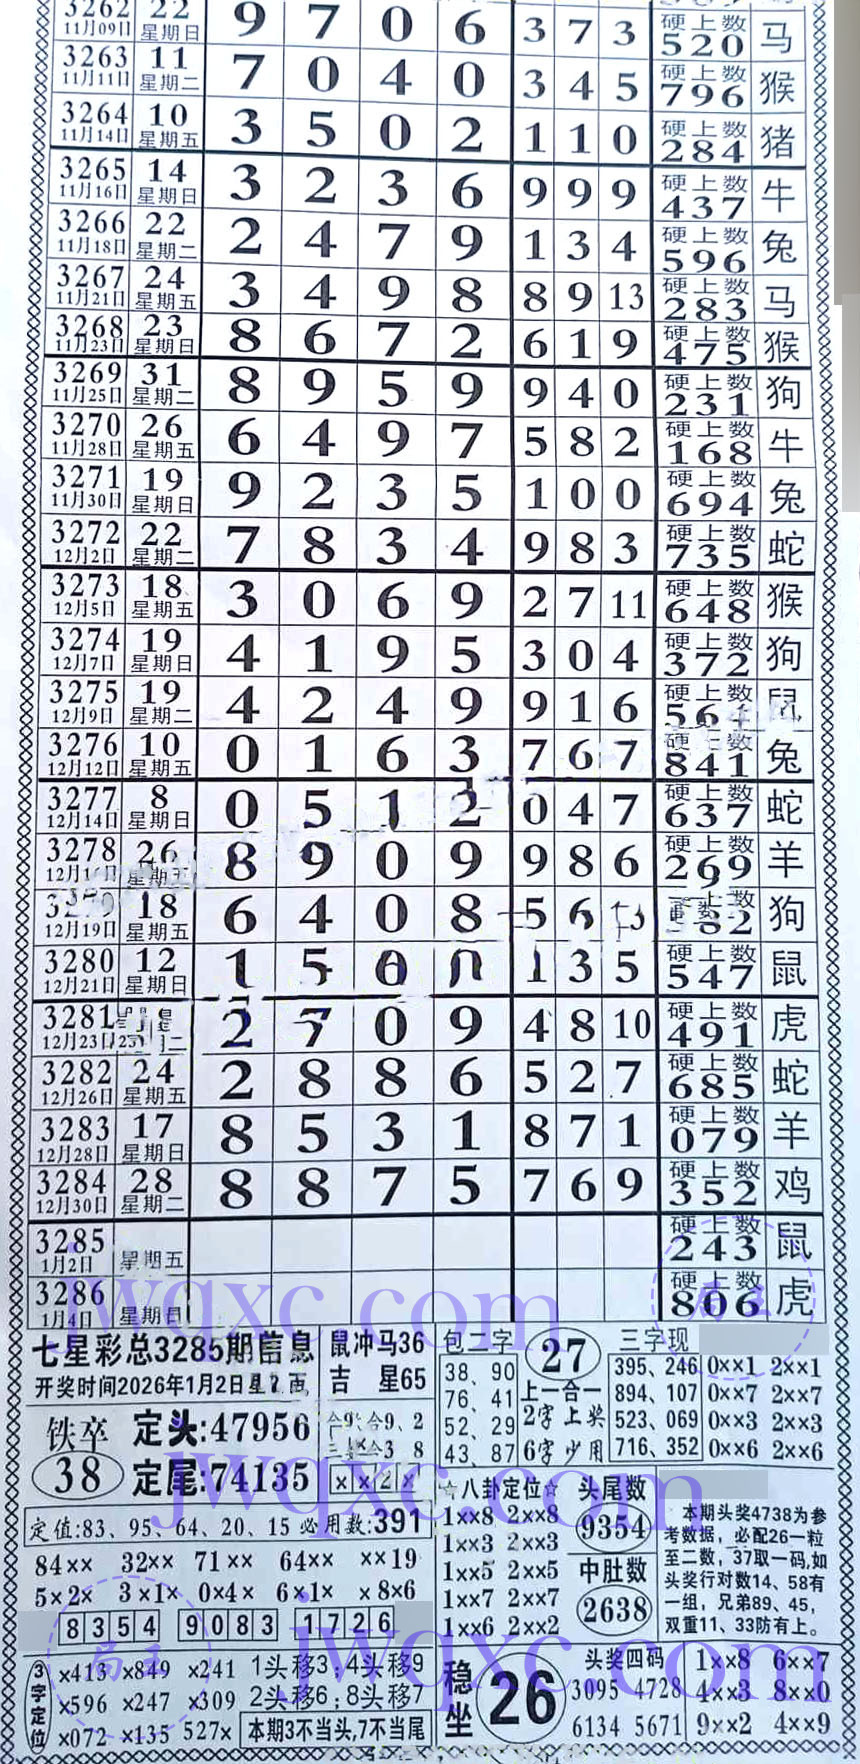 3262 22 9 7 0 6 3 7 3 硬上数 马
11月09日 星期日 520
3263 11 7 0 4 0 3 4 5 硬上数 猴
11月11日 星期二 796
3264 10 3 5 0 2 1 1 0 硬上数 猪
11月14日 星期五 284
3265 14 3 2 3 6 9 9 9 硬上数 牛
11月16日 星期日 437
3266 22 2 4 7 9 1 3 4 硬上数 兔
11月18日 星期二 596
3267 24 3 4 9 8 8 9 13 硬上数 马
11月21日 星期五 283
3268 23 8 6 7 2 6 1 9 硬上数 猴
11月23日 星期日 475
3269 31 8 9 5 9 9 4 0 硬上数 狗
11月25日 星期二 231
3270 26 6 4 9 7 5 8 2 硬上数 牛
11月28日 星期五 168
3271 19 9 2 3 5 1 0 0 硬上数 兔
11月30日 星期日 694
3272 22 7 8 3 4 9 8 3 硬上数 蛇
12月2日 星期二 735
3273 18 3 0 6 9 2 7 11 硬上数 猴
12月5日 星期五 648
3274 19 4 1 9 5 3 0 4 硬上数 狗
12月7日 星期日 372
3275 19 4 2 4 9 9 1 6 硬上数 鼠
12月9日 星期二 561
3276 10 0 1 6 3 7 6 7 硬上数 兔
12月12日 星期五 841
3277 8 0 5 1 2 0 4 7 硬上数 蛇
12月14日 星期日 637
3278 26 8 9 0 9 9 8 6 硬上数 羊
星期五 269
18 6 4 0 8 5 6 狗
12月19日 星期五
3280 12 1 5 0 1 3 5 硬上数 鼠
12月21日 星期日 547
3281 2 7 0 9 4 8 10 硬上数 虎
12月23日 491
3282 24 2 8 8 6 5 2 7 硬上数 蛇
12月26日 星期五 685
3283 17 8 5 3 1 8 7 1 硬上数 羊
12月28日 星期日 079
3284 28 8 8 7 5 7 6 9 硬上数 鸡
12月30日 星期二 352
3285 硬上数 鼠
1月2日 星期五 243
3286 硬上数 虎
1月4日 星期日 806
jwqxc.com
七星彩总3285期信息
开奖时间2026年1月2日
鼠冲马36
吉星65
铁卒 定头:47956
38 定尾:74135
合9、2
3 8
××2×
定值:83、95、64、20、15 必用数:391
84×× 32×× 71×× 64×× ××19
5×2× 3×1× 0×4× 6×1× ×8×6
8354 9083 1726
3字定位
×413 ×849 ×241
×596 ×247 ×309
×072 ×135 527×
1头移3;4头移9
2头移6;8头移7
本期3不当头,7不当尾
包二字 27
38、90
76、41
52、29
43、87
上一合一
2字上奖
6字少用
三字现
395、246 0××1 2××1
894、107 0××7 2××7
523、069 0××3 2××3
716、352 0××6 2××6
☆八卦定位☆
1××8 2××8
1××3 2××3
1××5 2××5
1××7 2××7
1××6 2××2
头尾数
9354
中肚数
2638
本期头奖4738为参
考数据，必配26一粒
至二数，37取一码,如
头奖行对数14、58有
一组，兄弟89、45，
双重11、33防有上。
jwqxc.com
稳坐 26
头奖四码
3095 4728
6134 5671
1××8 6××7
4××3 8××0
9××2 4××9
jwqxc.com